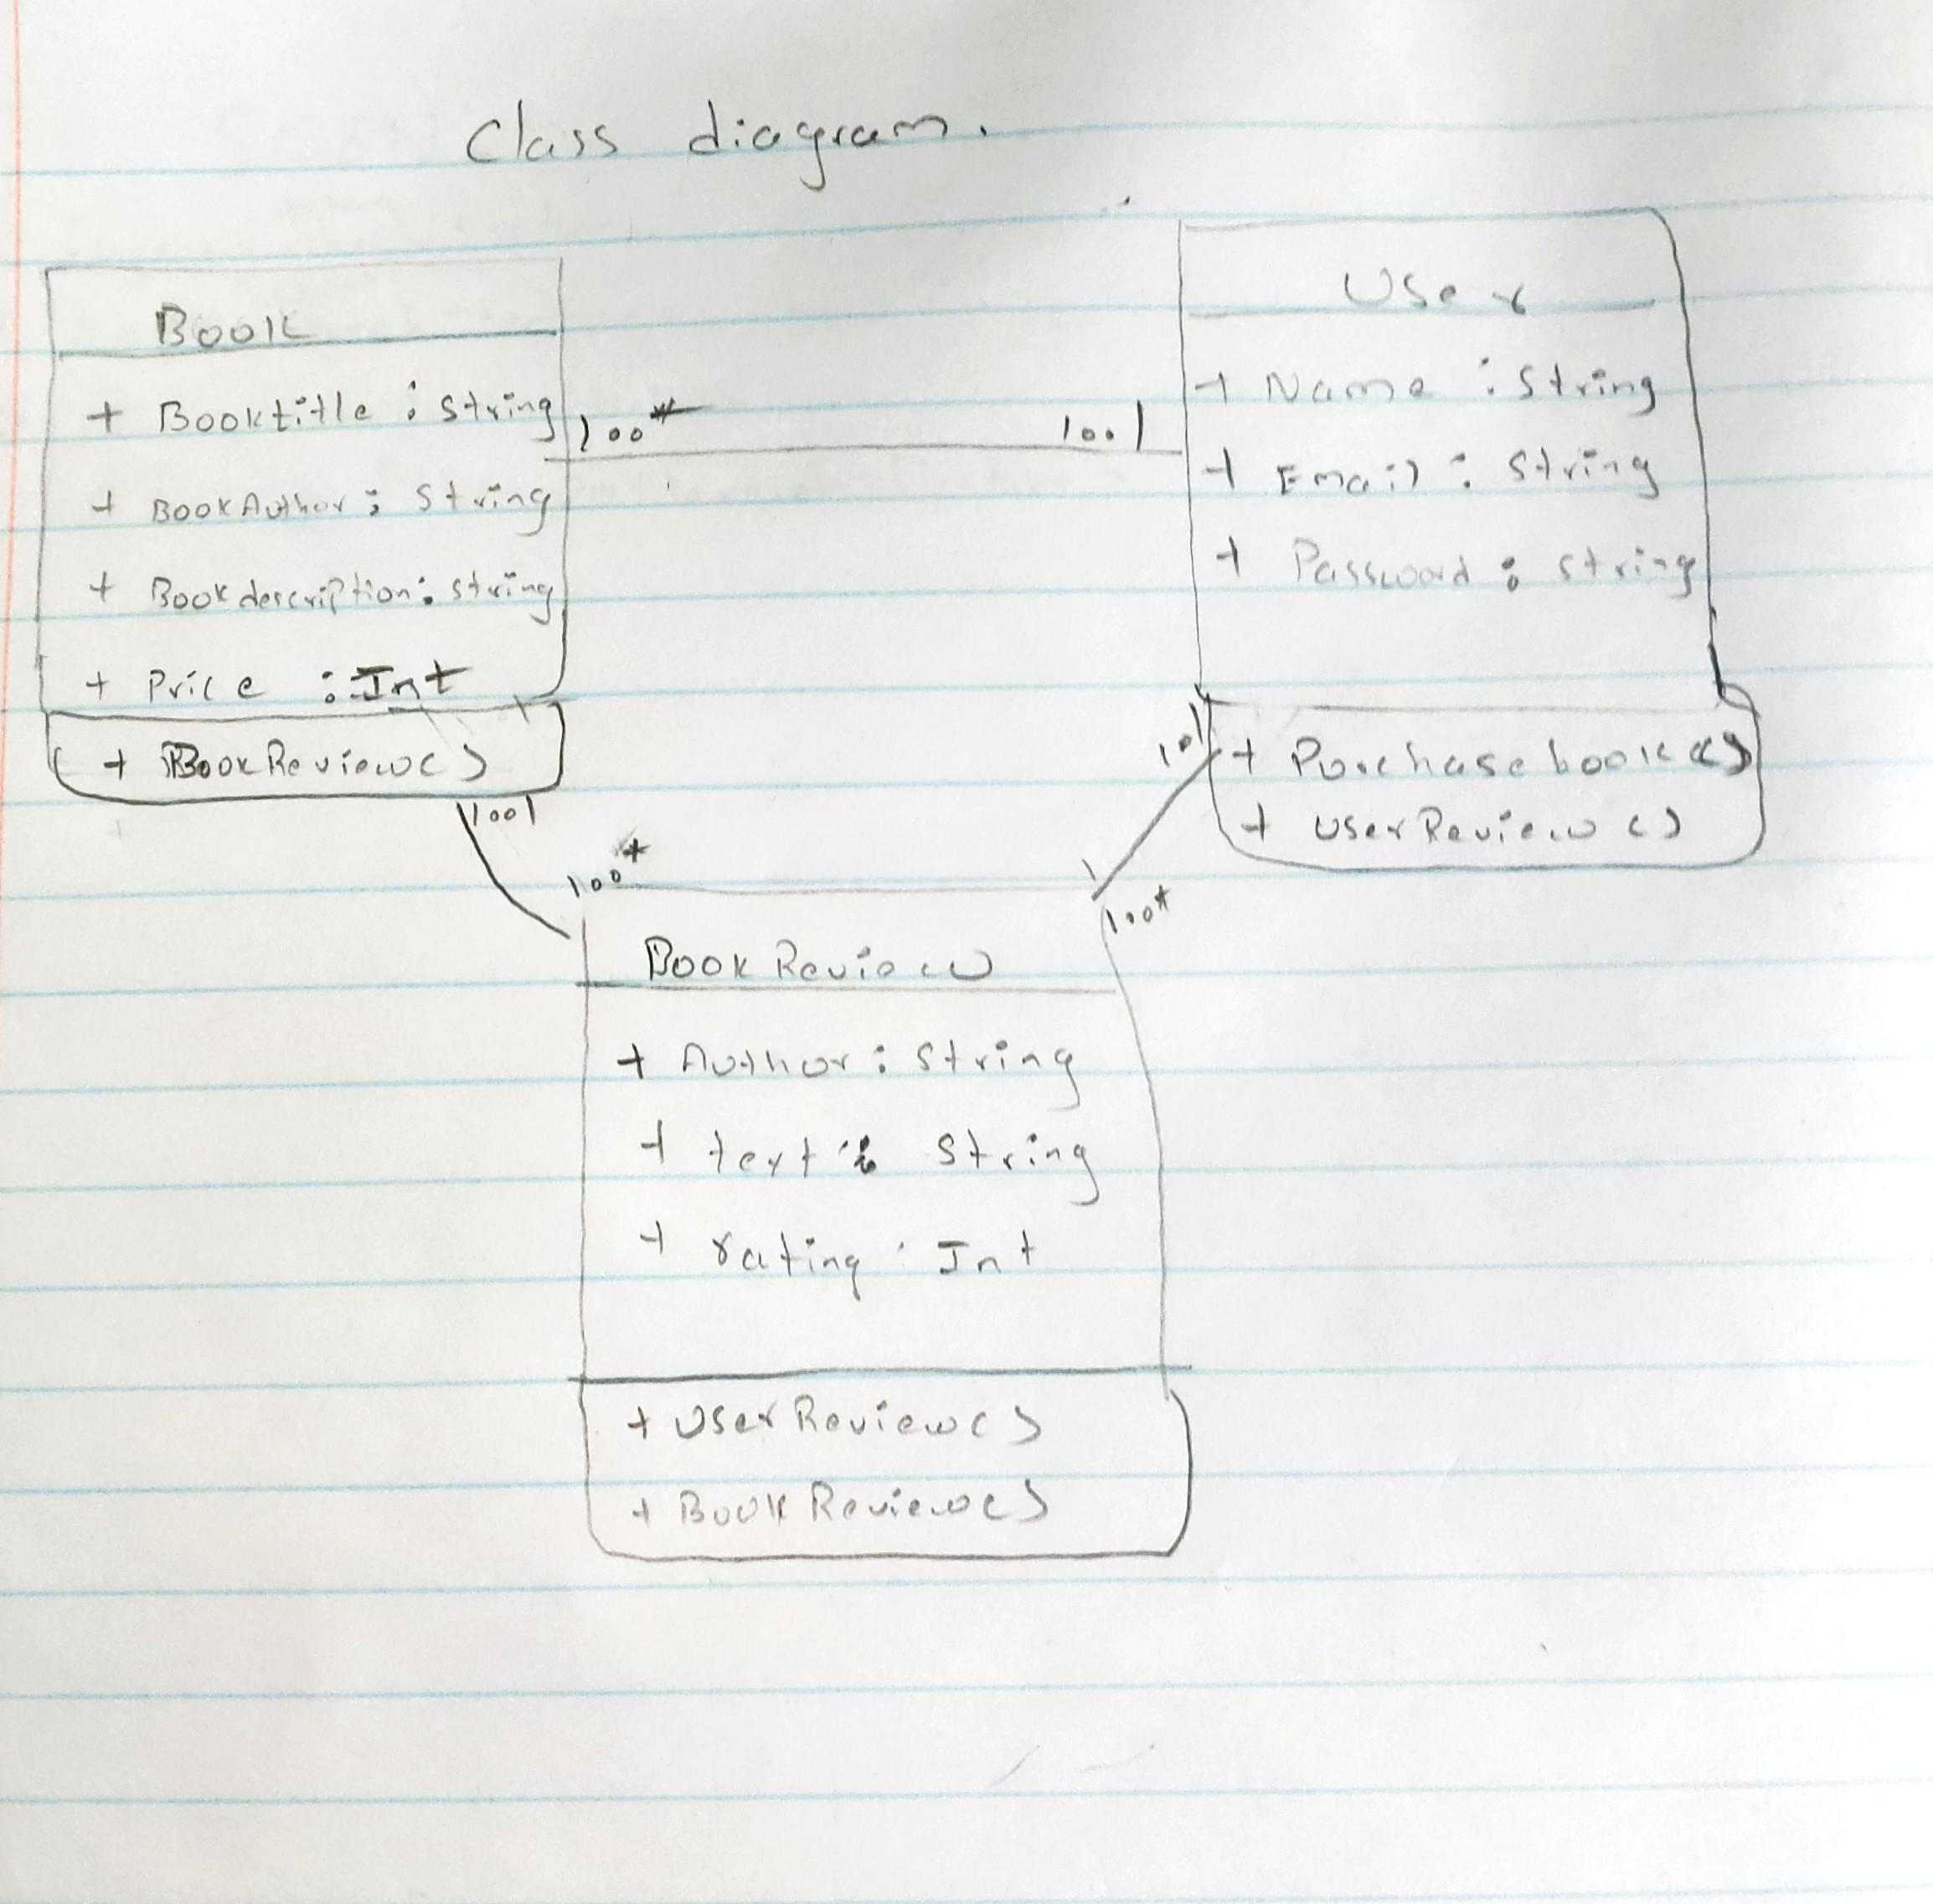 Class diagram.
Book
+ Booktitle : string
+ BookAuthor : string
+ Bookdescription : string
+ Price : Int
+ BookReview()
1 00*
1001
User
+ Name : string
+ Email : string
+ Password : string
+ Purchasebook()
+ UserReview()
1001
100*
101
100*
BookReview
+ Author : string
+ text : string
+ rating : Int
+ UserReview()
+ BookReview()